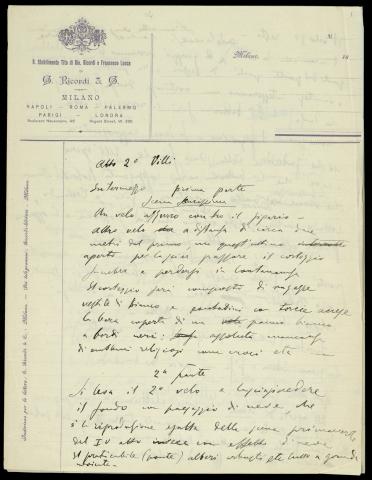 R. Stabilimento Tito di Gio. Ricordi e Francesco Lucca
di
G. Ricordi & C.
MILANO
NAPOLI - ROMA - PALERMO
PARIGI - LONDRA
Milano,
18
Atto 2º Villi
Intermezzo prima parte
Scena
Un velo azzurro contro il sipario -
altro velo a distanza di circa due
metri dal primo, ma quest'ultimo
aperto per lasciar passare il corteggio
funebre e perdersi in lontananza
Il corteggio sarà composto di ragazze
vestite di bianco e paesani con torcie accese
la bara coperta di un panno bianco
a bordi neri: assoluta mancanza
di emblemi religiosi come croci etc -
2ª parte
Si leva il 2º velo e lascia vedere
il fondo con paesaggio di neve, che
è la riproduzione esatta della scena
del Iº atto con effetto di neve
Il praticabile (ponte) alberi etc tutto